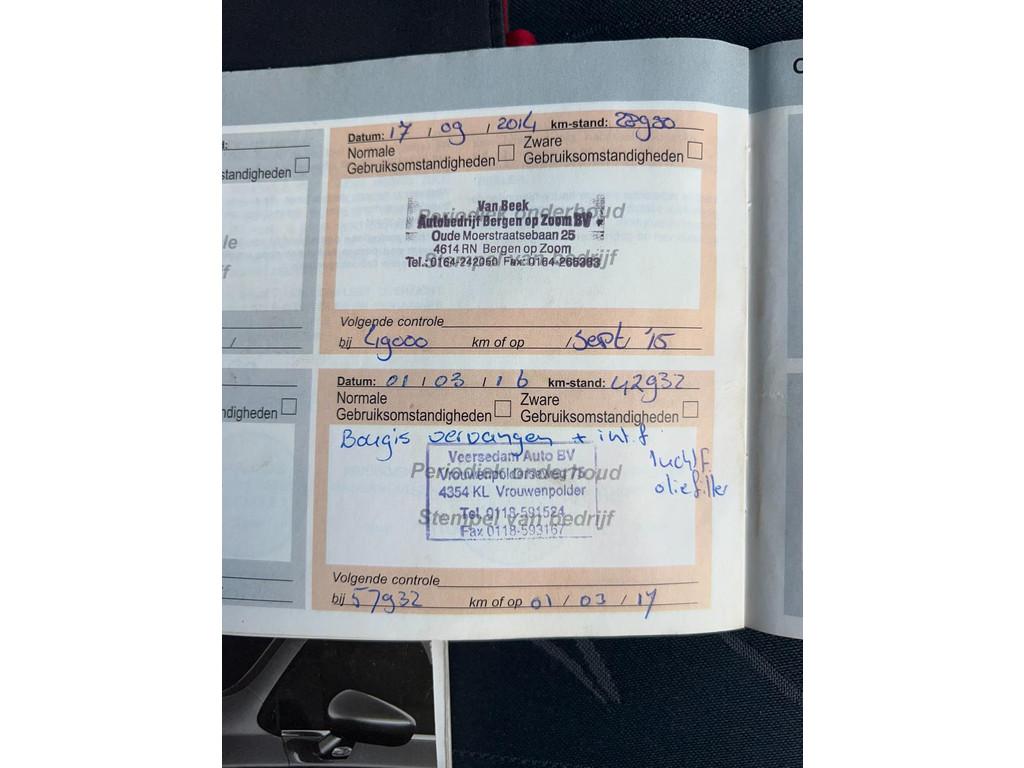 C
standigheden
le
f
/
Datum: 17 / 09 / 2014 km-stand: 28930
Normale Gebruiksomstandigheden Zware Gebruiksomstandigheden
Periodiek onderhoud
Stempel van bedrijf
Van Beek
Autobedrijf Bergen op Zoom BV
Oude Moerstraatsebaan 25
4614 RN Bergen op Zoom
Tel.: 0164-242050 Fax: 0164-265363
Volgende controle
bij 49000 km of op / sept / '15
ndigheden
Datum: 01 / 03 / 16 km-stand: 42932
Normale Gebruiksomstandigheden Zware Gebruiksomstandigheden
Bougis vervangen + int.f.
luchtf.
oliefilter
Periodiek onderhoud
Stempel van bedrijf
Veersedam Auto BV
Vrouwenpolderseweg 75
4354 KL Vrouwenpolder
Tel. 0118-591524
Fax 0118-593167
Volgende controle
bij 57932 km of op 01 / 03 / 17